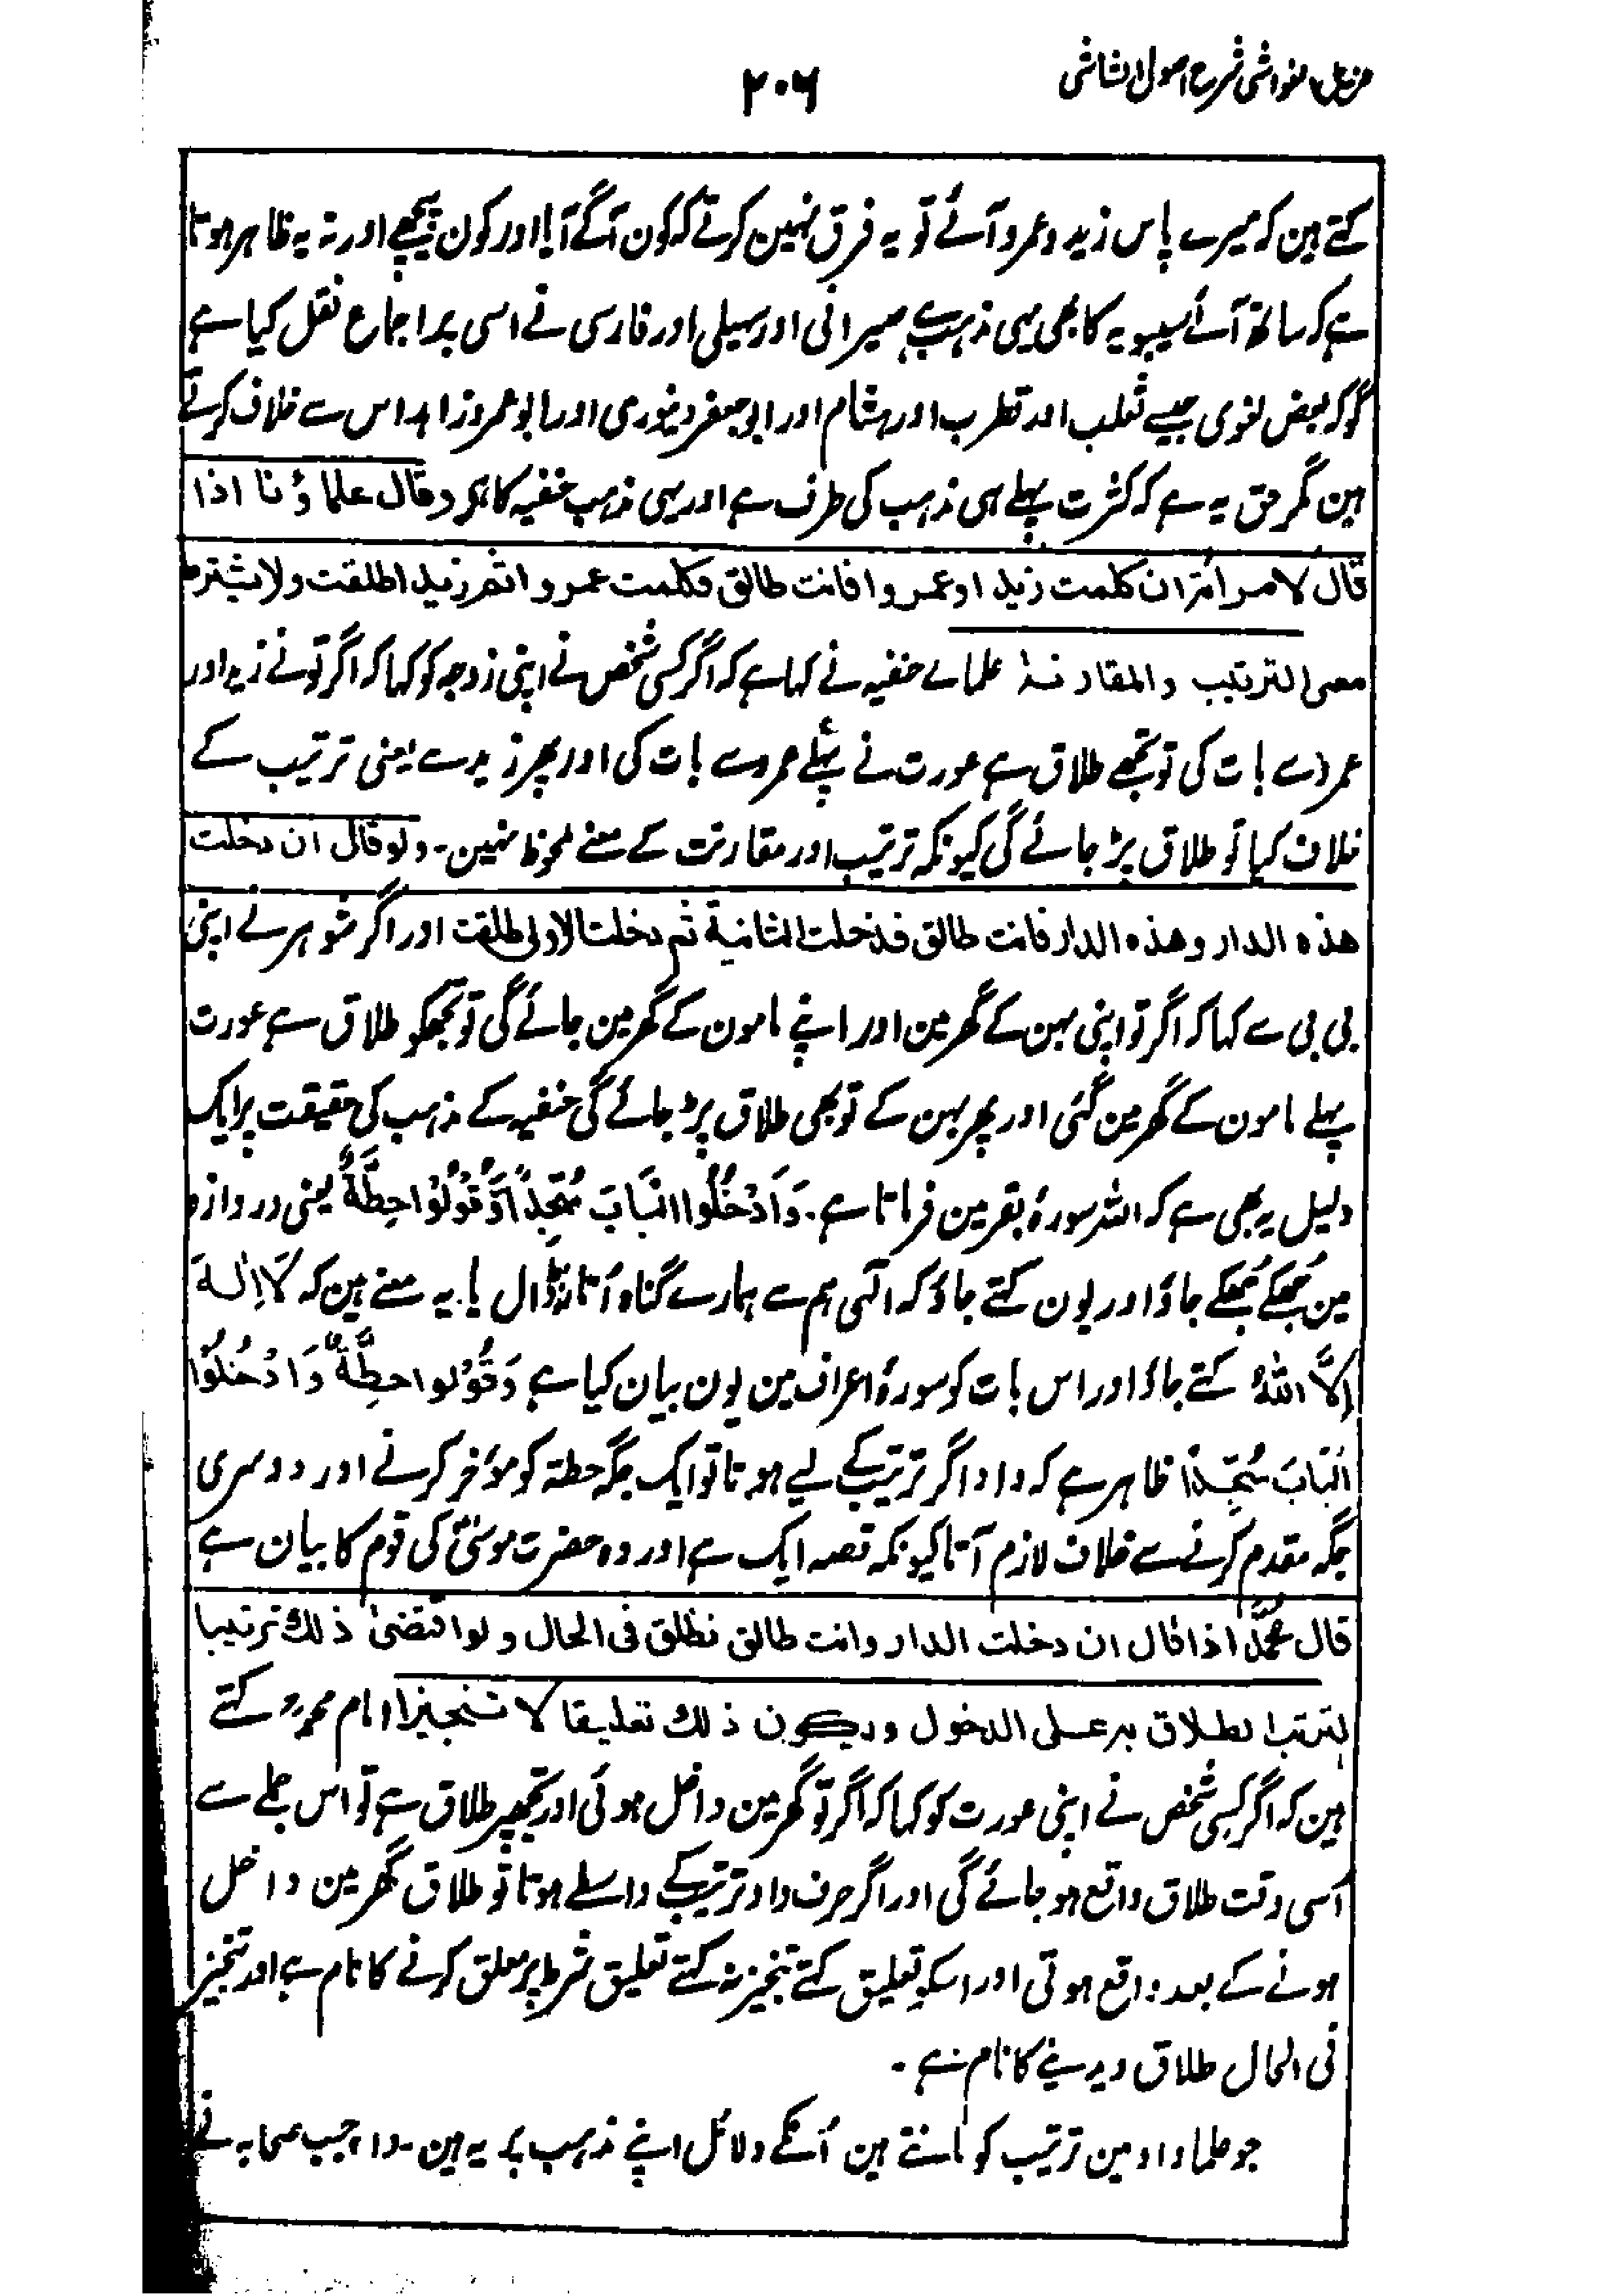 مزیل الغواشی شرح اصول الشاشی
۲۰۶
کہتے ہین کہ میرے پاس زید و عمرو آئے تو یہ فرق نہین کرتے کہ کون آگے آیا اور کون پیچھے اور نہ یہ ظاہر ہوتا
ہے کہ ساتھ آئے سیبویہ کا بھی یہی مذہب ہے سیرافی اور سہیلی اور فارسی نے اسی پر اجماع نقل کیا ہے
گو کہ بعض نحوی جیسے ثعلب اور قطرب اور ہشام اور ابو جعفر دینوری اور ابو عمرو زاہد اس سے خلاف کرتے
ہین مگر حق یہ ہے کہ کثرت پہلے ہی مذہب کی طرف ہے اور یہی مذہب حنفیہ کا ہو وقال علماؤنا اذا
قال لامرأته ان کلمت زیدا وعمروا فانت طالق فکلمت عمروا ثم زیدا طلقت ولا یشترط
معنی الترتیب والمقارنة علمائے حنفیہ نے کہا ہے کہ اگر کسی شخص نے اپنی زوجہ کو کہا کہ اگر تو نے زید اور
عمرو سے بات کی تو تجھے طلاق ہے عورت نے پہلے عمرو سے بات کی اور پھر زید سے یعنی ترتیب کے
خلاف کیا تو طلاق پڑ جائے گی کیونکہ ترتیب اور مقارنت کے معنے ملحوظ نہین۔ ولو قال ان دخلت
هذه الدار وهذه الدار فانت طالق فدخلت الثانیة ثم دخلت الاولی طلقت اور اگر شوہر نے اپنی
بی بی سے کہا کہ اگر تو اپنی بہن کے گھر مین اور اپنے مامون کے گھر مین جائے گی تو تجھکو طلاق ہے عورت
پہلے مامون کے گھر مین گئی اور پھر بہن کے تو بھی طلاق پڑ جائے گی حنفیہ کے مذہب کی حقیقت پر ایک
دلیل یہ بھی ہے کہ اللہ سورۂ بقر مین فرماتا ہے۔ وَادْخُلُوا الْبَابَ سُجَّدًا وَّقُوْلُوْا حِطَّةٌ یعنی دروازہ
مین جُھکے جُھکے جاؤ اور یون کہتے جاؤ کہ الٰہی ہم سے ہمارے گناہ اُتار ڈال یا یہ معنے ہین کہ لَا اِلٰهَ
اِلَّا اللّٰهُ کہتے جاؤ اور اس بات کو سورۂ اعراف مین یون بیان کیا ہے وَقُوْلُوا حِطَّةٌ وَّادْخُلُوْا
الْبَابَ سُجَّدًا ظاہر ہے کہ واو اگر ترتیب کے لیے ہوتا تو ایک جگہ حطۃ کو مؤخر کرنے اور دوسری
جگہ مقدم کرنے سے خلاف لازم آتا کیونکہ قصہ ایک ہے اور وہ حضرت موسیٰؑ کی قوم کا بیان ہے
قال محمدؒ اذا قال ان دخلت الدار وانت طالق تطلق فی الحال ولو اقتضیٰ ذلك ترتیبا
لترتب الطلاق به علی الدخول ویکون ذلك تعلیقا لا تنجیزا امام محمدؒ کہتے
ہین کہ اگر کسی شخص نے اپنی عورت کو کہا کہ اگر تو گھر مین داخل ہوئی اور تجھپر طلاق ہے تو اس جملے سے
اُسی وقت طلاق واقع ہو جائے گی اور اگر حرف واو ترتیب کے واسطے ہوتا تو طلاق گھر مین داخل
ہونے کے بعد واقع ہوتی اور اسکو تعلیق کہتے تنجیز نہ کہتے تعلیق شرط پر معلق کرنے کا نام ہے اور تنجیز
فی الحال طلاق دیدینے کا نام ہے۔
جو علما واو مین ترتیب کو مانتے ہین اُنکے دلائل اپنے مذہب پر یہ ہین۔ جب صحابہ نے